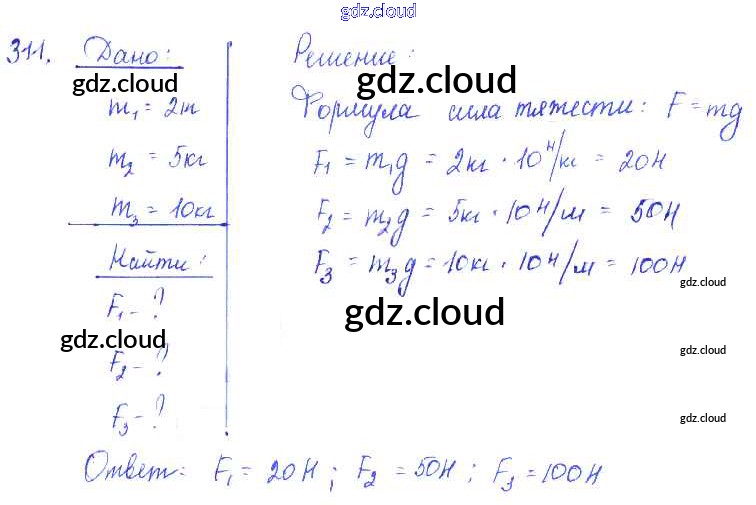 gdz.cloud
311. Дано:
gdz.cloud
m₁ = 2т
m₂ = 5кг
m₃ = 10кг
Найти:
F₁ - ?
gdz.cloud
F₂ - ?
F₃ - ?
Решение:
gdz.cloud
Формула сила тяжести: F = mg
F₁ = m₁g = 2кг · 10 Н/кг = 20Н
F₂ = m₂g = 5кг · 10 Н/м = 50Н
F₃ = m₃g = 10кг · 10 Н/м = 100Н
gdz.cloud
gdz.cloud
gdz.cloud
gdz.cloud
Ответ: F₁ = 20Н; F₂ = 50Н; F₃ = 100Н